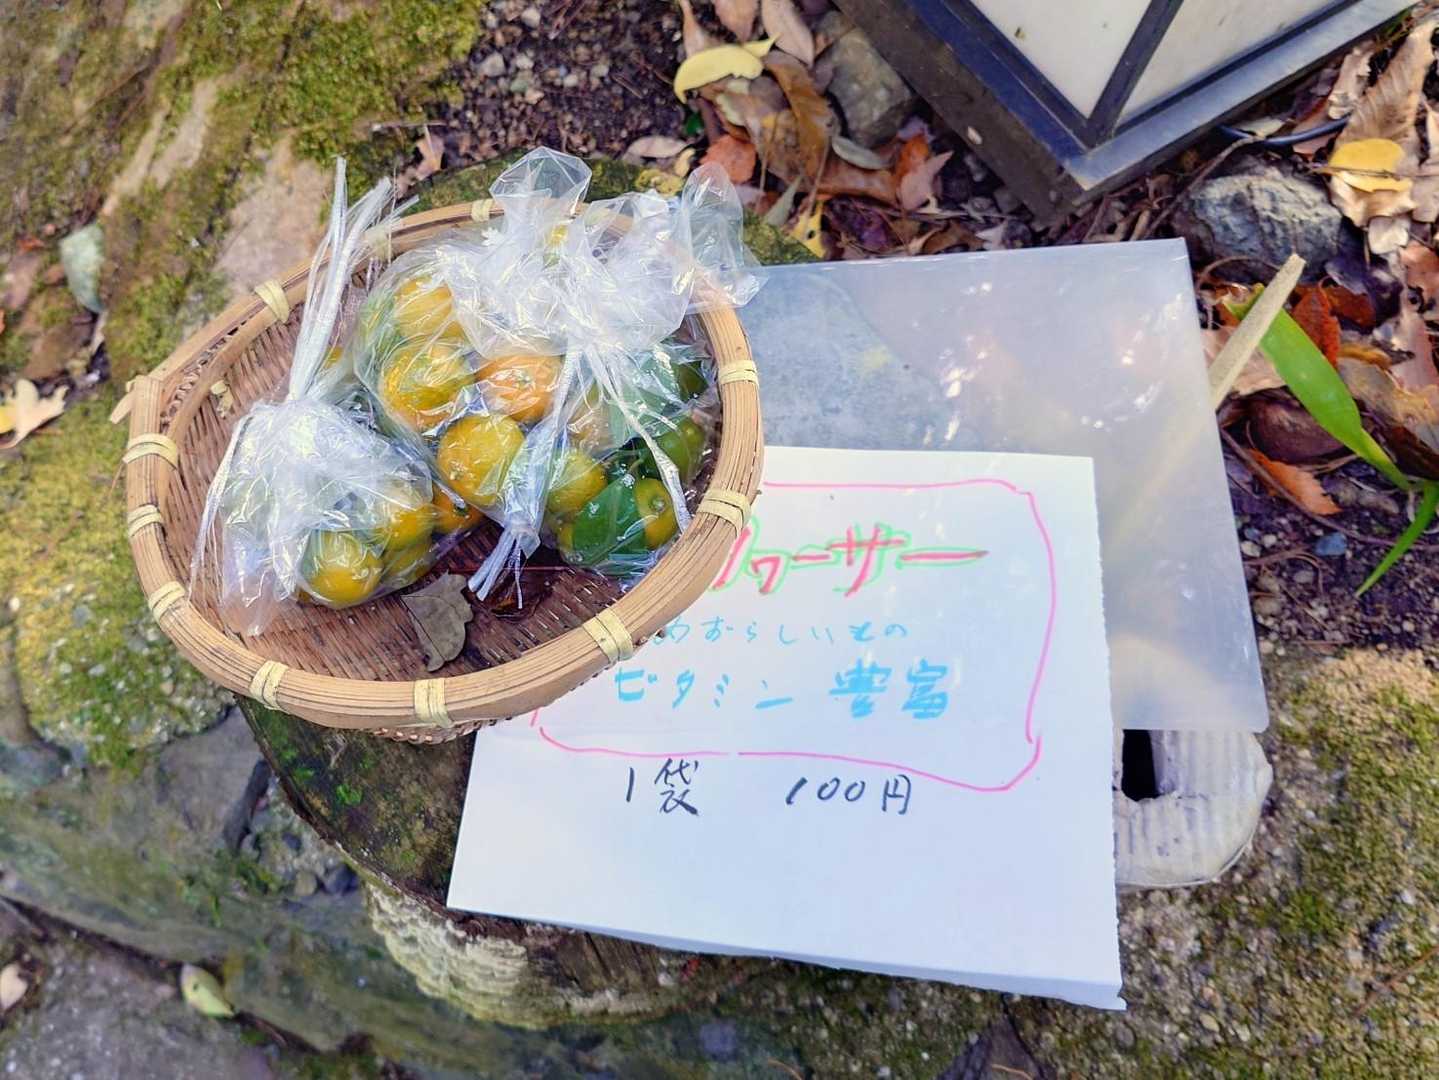 ワーサー
めずらしいもの
ビタミン 豊富
1袋 100円